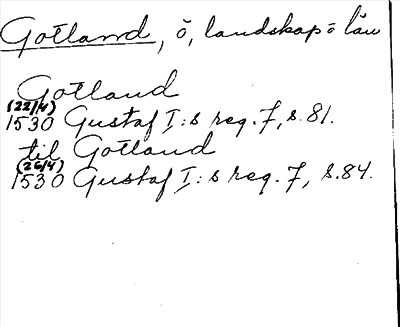 Gotland, ö, landskap o län
Gotland
(22/4)
1530 Gustaf I:s reg. 7, s. 81.
til Gotland
(26/4)
1530 Gustaf I:s reg. 7, s. 84.